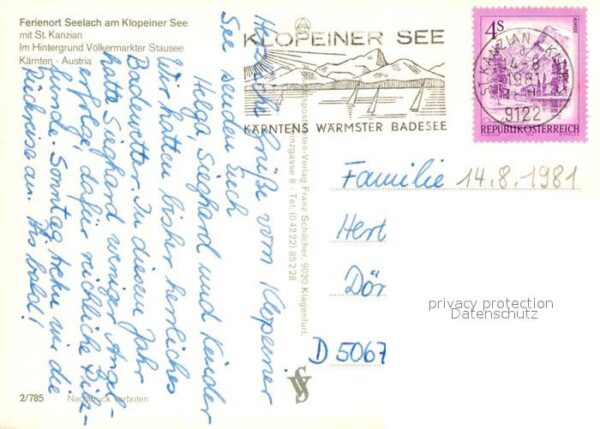 Ferienort Seelach am Klopeiner See
mit St. Kanzian
Im Hintergrund Völkermarkter Stausee
Kärnten - Austria
Herzliche Grüße vom Klopeiner
See senden Euch
Helga, Sieghard und Kinder
Wir hatten bisher herrliches
Badewetter. In diesem Jahr
hatte Sieghard weniger Angel-
erfolge, dafür reichliche Pilz-
funde. Sonntag treten wir die
Rückreise an. Bis bald!
2/785
Nachdruck verboten
Ansichtskarten-Verlag Franz Schilcher, 9020 Klagenfurt,
gasse 8 - Tel. (0 42 22) 85 2 28
KLOPEINER SEE
KÄRNTENS WÄRMSTER BADESEE
ST. KANZIAN
14.-8.
1981
9122
4S
REPUBLIK ÖSTERREICH
Familie 14.8.1981
Hert
Dör
D 5067
privacy protection
Datenschutz